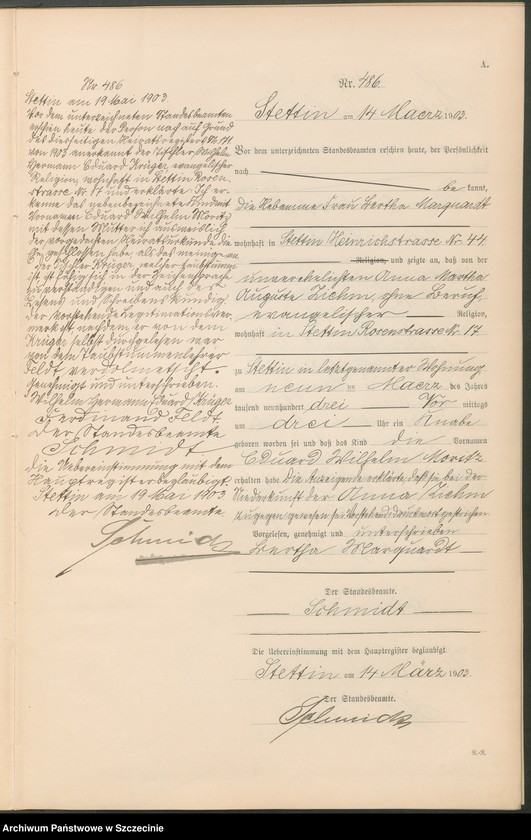 A.
Nr. 486
Stettin am 19 Mai 1903.
Vor dem unterzeichneten Standesbeamten
erschien heute der Person nach auf Grund
des diesseitigen Heiratsregisters Nr. 171
von 1903 anerkannt der Tischler Wilhelm
Hermann Eduard Krüger, evangelischer
Religion, wohnhaft in Stettin Rosen-
strasse Nr. 17 und erklärte: Ich er-
kenne das nebenbezeichnete Kind mit
Vornamen Eduard Wilhelm Moritz,
mit dessen Mutter ich ausweislich
der vorgedachten Heiratsurkunde die
Ehe geschlossen habe, als das meinige an.
Der Tischler Krüger, welcher taubstumm
ist, ist fähig sich in der Zeichensprache
zu verständigen und auch des
Lesens und Schreibens kundig,
der vorstehende Legitimationsver-
merk ist nachdem er von dem
Krüger selbst durchgelesen war
von dem Taubstummenlehrer
Feldt verdolmetscht.
Genehmigt und unterschrieben.
Wilhelm Hermann Eduard Krüger
Ferdinand Feldt.
Der Standesbeamte
Schmidt.
Die Uebereinstimmung mit dem
Hauptregister beglaubigt.
Stettin am 19 Mai 1903
Der Standesbeamte
Schmidt
Nr. 486.
Stettin am 14 Maerz 1903.
Vor dem unterzeichneten Standesbeamten erschien heute, der Persönlichkeit
nach
be kannt,
die Hebamme Frau Bertha Marquardt
wohnhaft in Stettin Heinrichstrasse Nr. 44.
Religion, und zeigte an, daß von der
unverehelichten Anna Martha
Auguste Ziehm, ohne Beruf,
evangelischer Religion,
wohnhaft in Stettin Rosenstrasse Nr. 17
zu Stettin in letztgenannter Wohnung
am neun ten Maerz des Jahres
tausend neunhundert drei Vor mittags
um drei Uhr ein Knabe
geboren worden sei und daß das Kind die Vornamen
Eduard Wilhelm Moritz
erhalten habe. Die Anzeigende erklärte, daß sie bei der
Niederkunft der Anna Ziehm
zugegen gewesen sei. Vorstehend 1 Druckwort gestrichen
Vorgelesen, genehmigt und unterschrieben
Bertha Marquardt
Der Standesbeamte.
Schmidt
Die Uebereinstimmung mit dem Hauptregister beglaubigt
Stettin am 14 März 1903.
Der Standesbeamte.
Schmidt
Archiwum Państwowe w Szczecinie